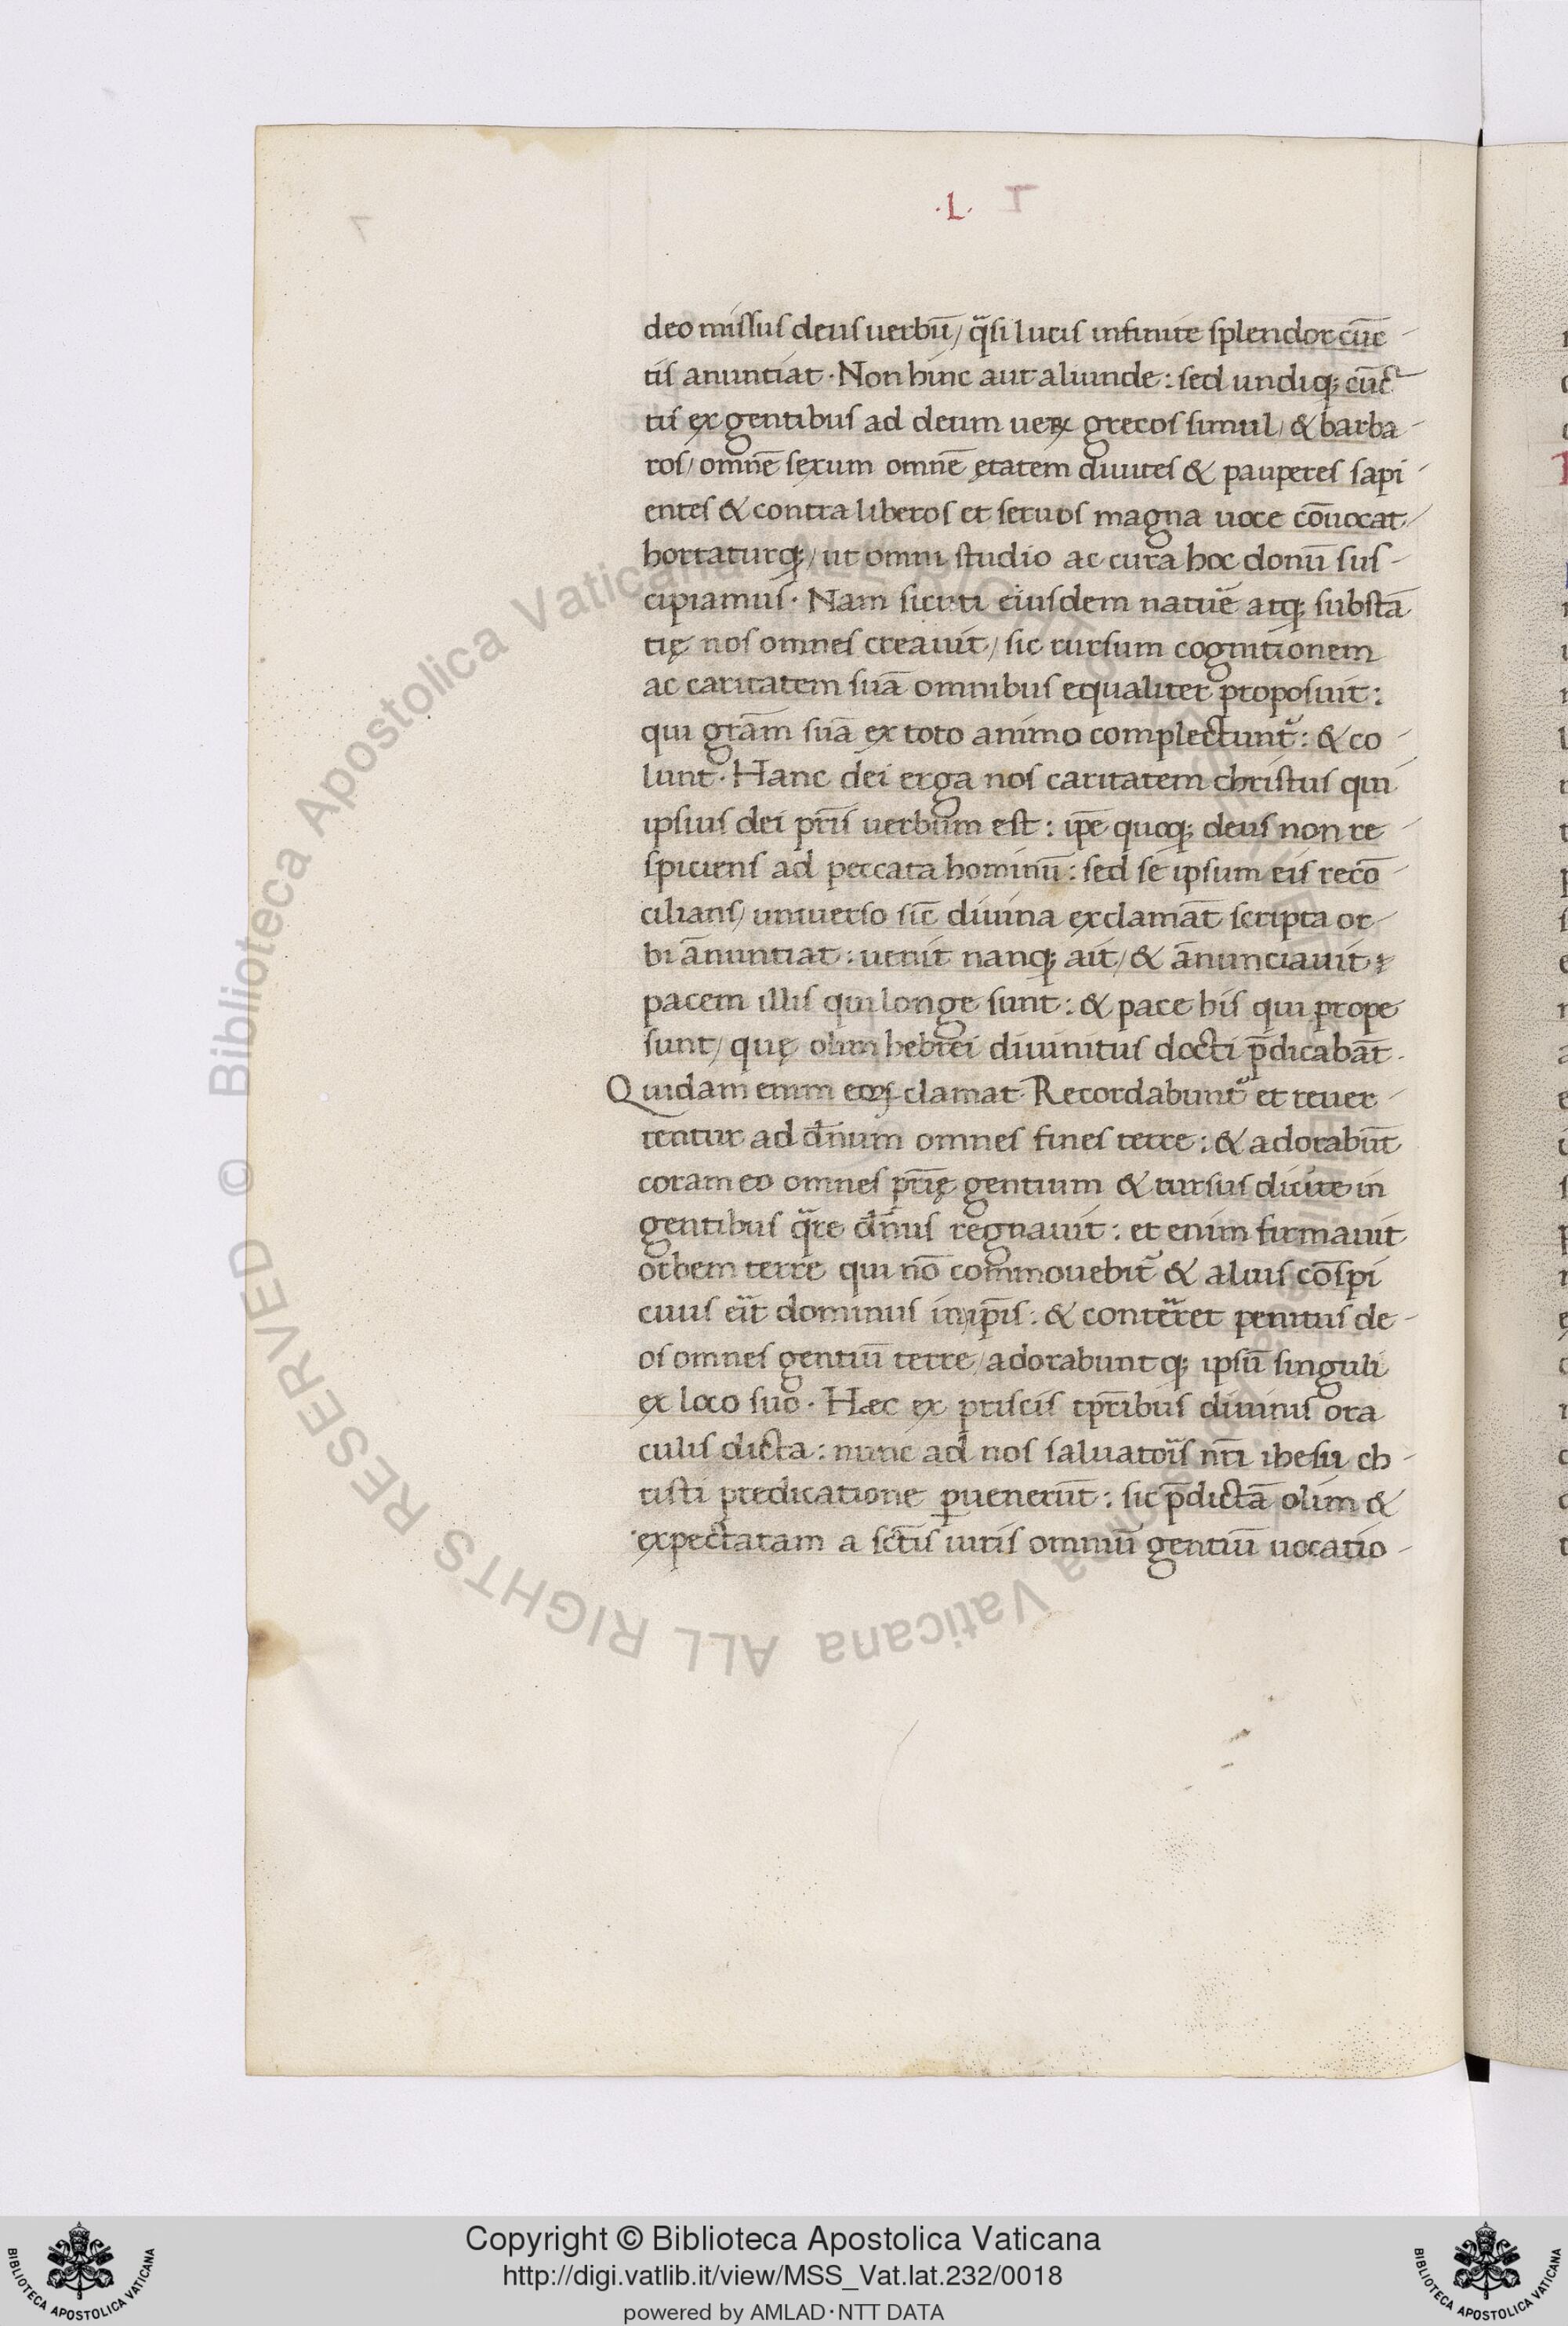 ·L·
deo missus deus uerbū/ q̈si lucis infinite splendor cūc-
tis anuntiat· Non hinc aut aliunde: sed undiq; cūc-
tis ex gentibus ad deum ueꝝ grecos simul/ & barba-
ros/ omnē sexum omnē ętatem diuites & pauperes sapi-
entes & contra liberos et seruos magna uoce cōuocat
hortaturq;/ ut omni studio ac cura hoc donū sus-
cipiamus· Nam sicuti eiusdem natuē atq; substā
tię nos omnes creauit/ sic rursum cognitionem
ac caritatem suā omnibus equaliter proposuit:
qui grām suā ex toto animo complectunt᷑: & co-
lunt· Hanc dei erga nos caritatem christus qui
ipsius dei pr̄is uerbum est: ip̄e quoq; deus non re-
spiciens ad peccata hominū: sed se ipsum eis recō-
cilians/ uniuerso sic̄ diuina exclamāt scripta or-
bi ānuntiat: uenit nanq; ait/ & ānunciauit
pacem illis qui longe sunt: & pace his qui prope
sunt/ quę olim hebrei diuinitus docti p̄dicabāt·
Quidam enim eoꝝ clamat· Recordabunt᷑ et reuer-
tentur ad dn̄um omnes fines terre: & adorabūt
coram eo omnes pr̄ię gentium & rursus dicite in
gentibus q̈re dn̄us regnauit: et enim firmauit
orbem terre qui nō commouebit᷑ & aliuis cōspi
cuus eït dominus in ip̄is: & contëret penitus de-
os omnes gentiū terre/ adorabuntq; ipsū singuli
ex loco suo· Haec ex priscis tp̄ribus diuinis ora
culis dicta: nunc ad nos saluatoïs nr̄i ihesu ch-
risti predicatione ꝑuenerūt: sic p̄dictā olim &
expectatam a sc̄tis iuris omniū gentiū uocatio-
Copyright © Biblioteca Apostolica Vaticana
http://digi.vatlib.it/view/MSS_Vat.lat.232/0018
powered by AMLAD·NTT DATA
BIBLIOTECA APOSTOLICA VATICANA
BIBLIOTECA APOSTOLICA VATICANA
© Biblioteca Apostolica Vaticana ALL RIGHTS RESERVED